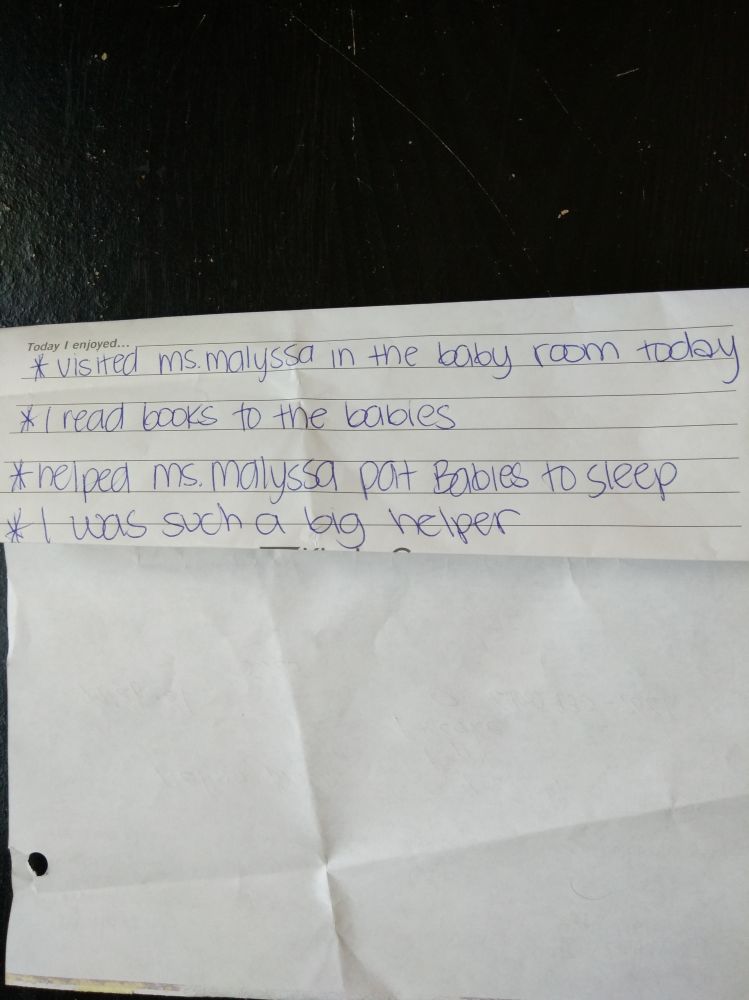 Today I enjoyed...
* visited ms. malyssa in the baby room today
* I read books to the babies
* helped ms. malyssa pat Babies to sleep
* I was such a big helper